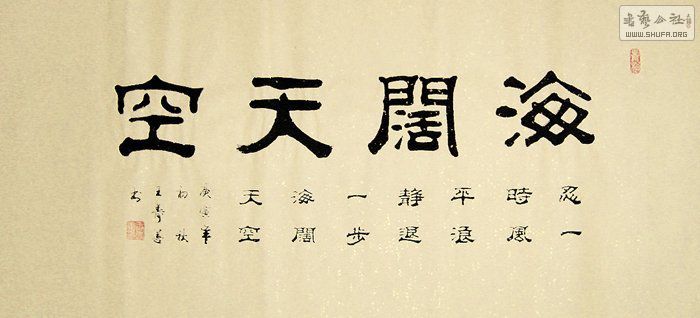 海闊天空
忍一
時風
平浪
靜退
一步
海闊
天空
庚寅年
初秋
王
書
書艺公社
WWW.SHUFA.ORG